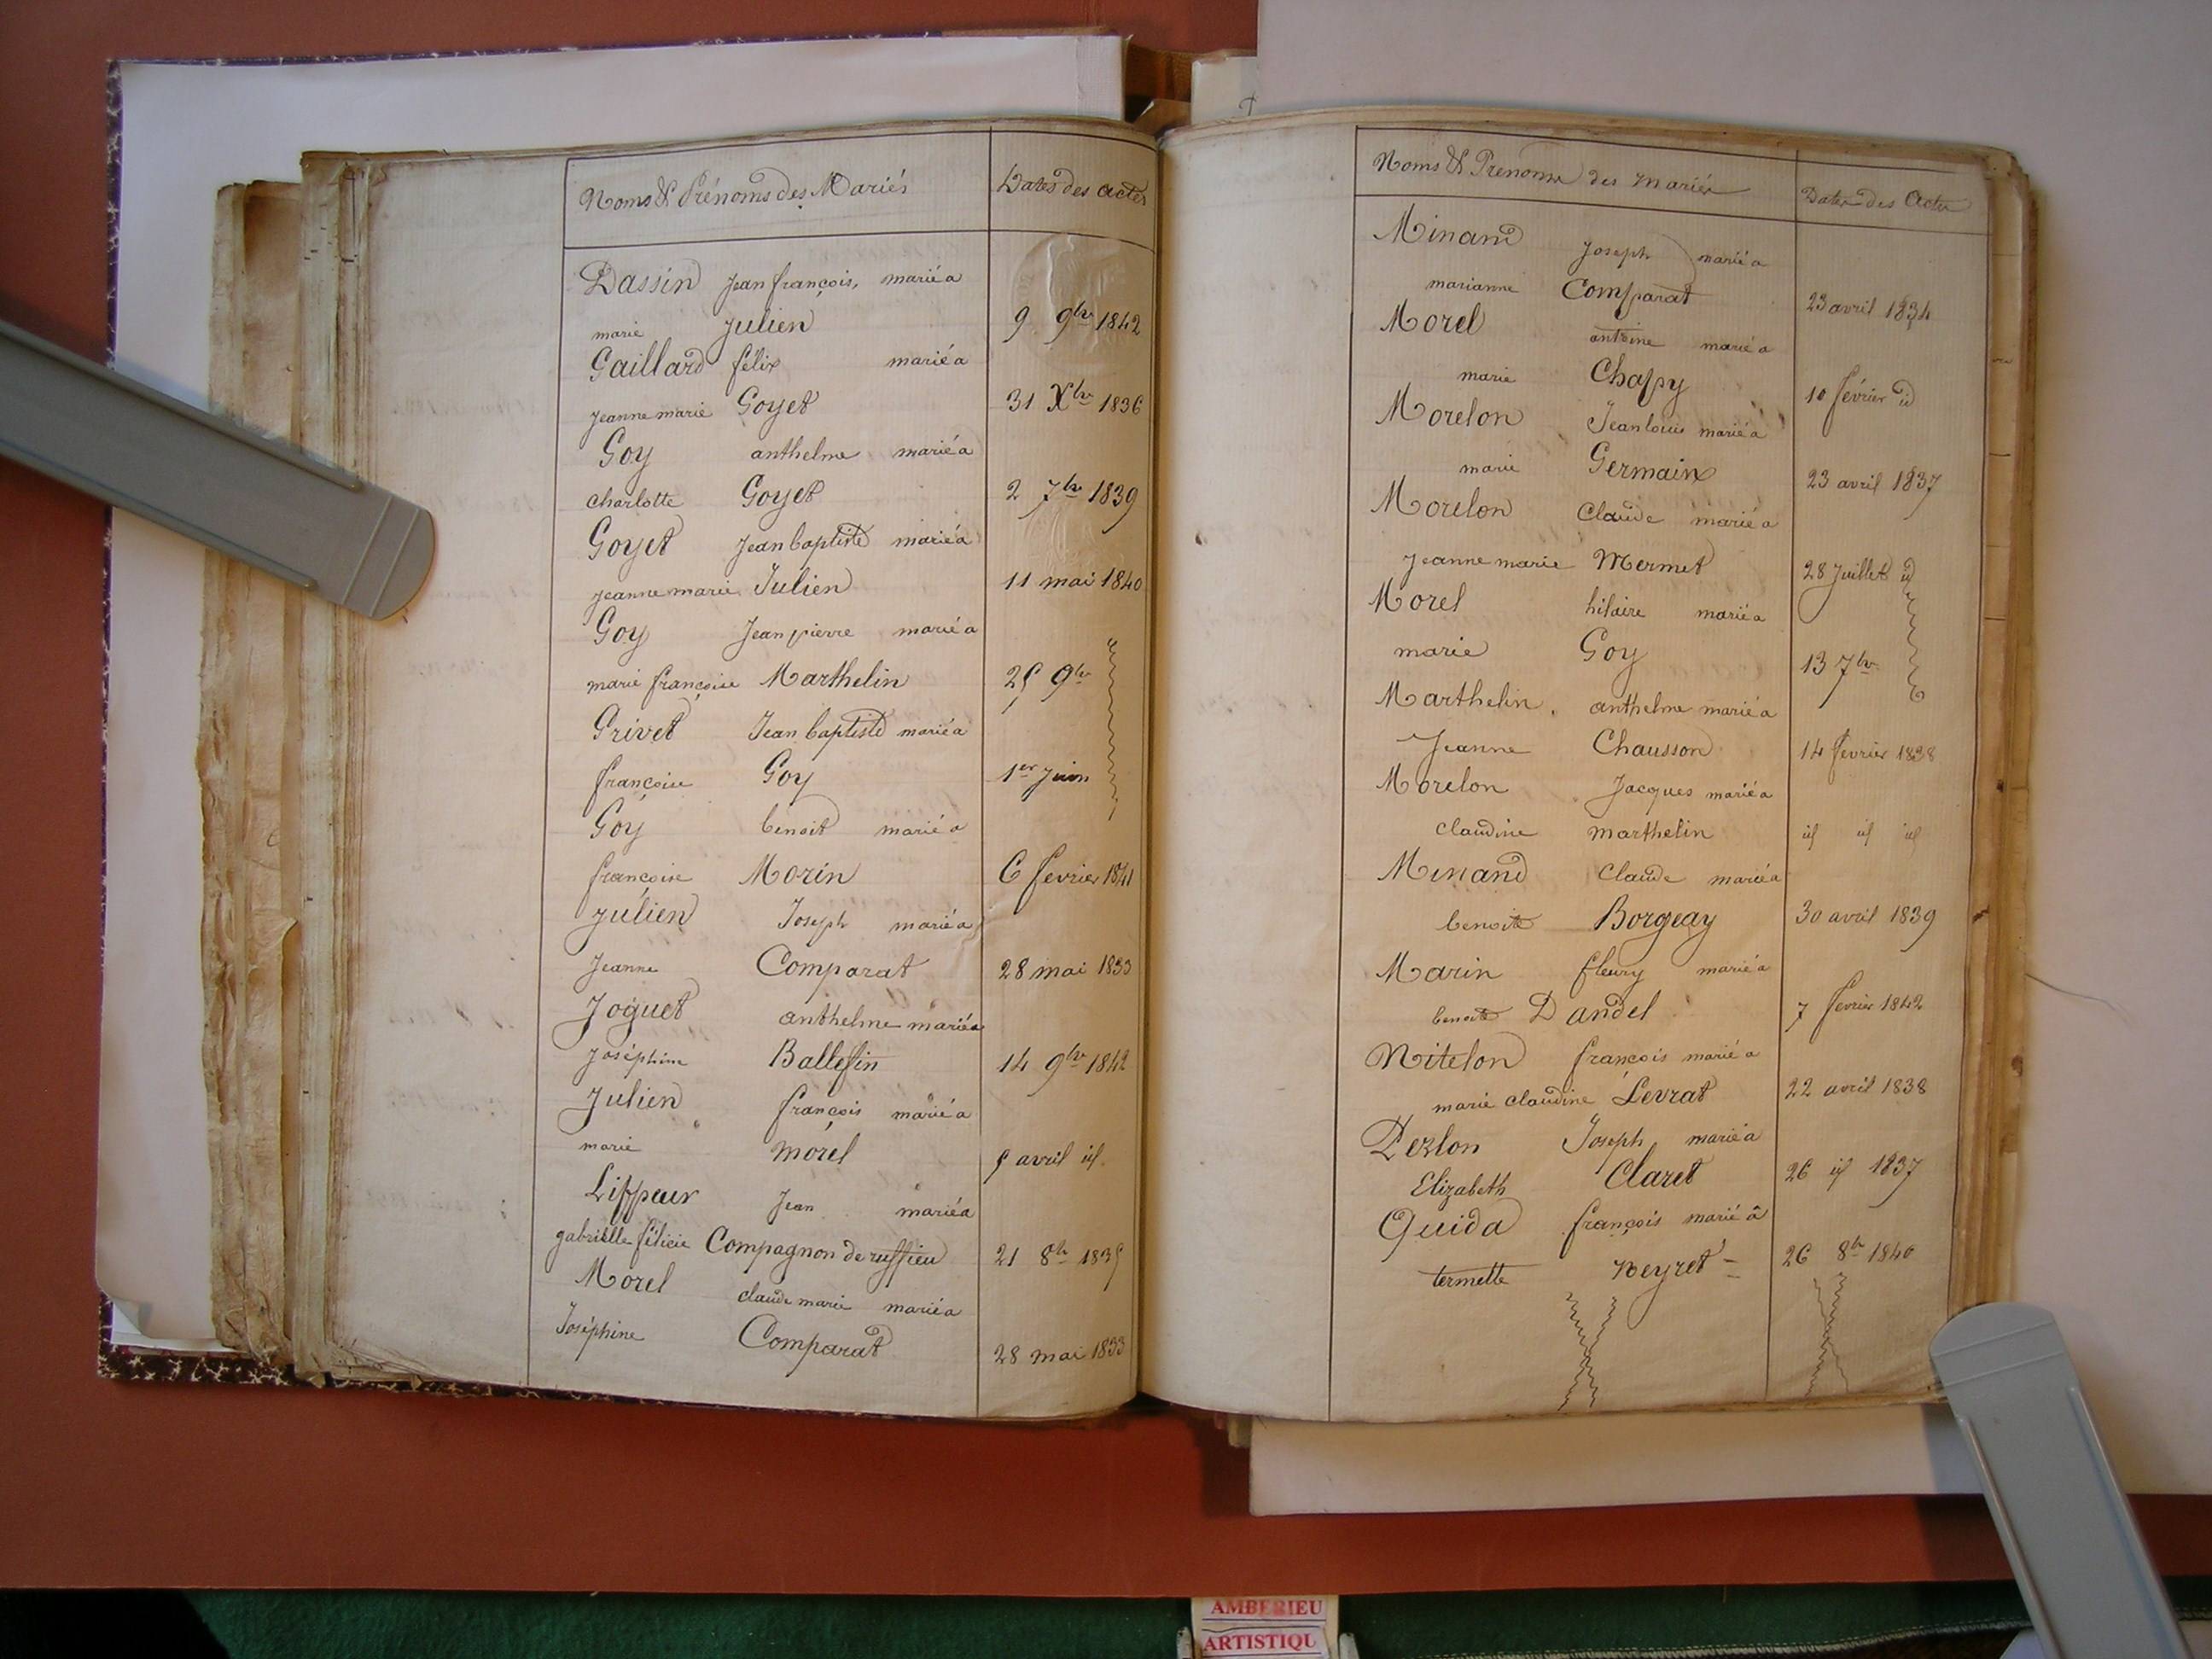 Noms & Prénoms des Mariés Dates des actes
Dassin Jean françois, marié a
marie Julien 9 9bre 1842
Gaillard félix marié a
jeanne marie Goyet 31 Xbre 1836
Goy anthelme marié a
charlotte Goyet 2 7bre 1839
Goyet Jean baptiste marié a
jeanne marie Julien 11 mai 1840
Goy Jean pierre marié a
marie françoise Marthelin 25 9bre
Grivet Jean baptiste marié a
françoise Goy 1er Juin
Goy benoit marié a
françoise Morin 6 février 1841
Julien Joseph marié a
Jeanne Comparat 28 mai 1833
Joguet anthelme marié a
Joséphine Ballessin 14 9bre 1842
Julien françois marié a
marie morel 5 avril id.
Lippeur Jean marié a
gabrielle félicie Compagnon de ruffieu 21 8bre 1835
Morel claude marie marié a
Joséphine Comparat 28 mai 1833
Noms & Prenoms des mariés Dates des Actes
Minand Joseph marié a
marianne Comparat 23 avril 1834
Morel antoine marié a
marie Chapy 10 février id
Morelon Jean louis marié a
marie Germain 23 avril 1837
Morelon Claude marié a
Jeanne marie Mermet 28 Juillet id
Morel hilaire marié a
marie Goy 13 7bre
Marthelin anthelme marié a
Jeanne Chausson 14 février 1838
Morelon Jacques marié a
claudine marthelin id id id
Minand Claude marié a
benoite Borgeay 30 avril 1839
Marin fleury marié a
benoite Dandel 7 février 1842
Nitelon françois marié a
marie claudine Levrat 22 avril 1838
Perlon Joseph marié a
Elizabeth Claret 26 id 1837
Quida françois marié à
termette Neyret = 26 8bre 1840
AMBERIEU
ARTISTIQU